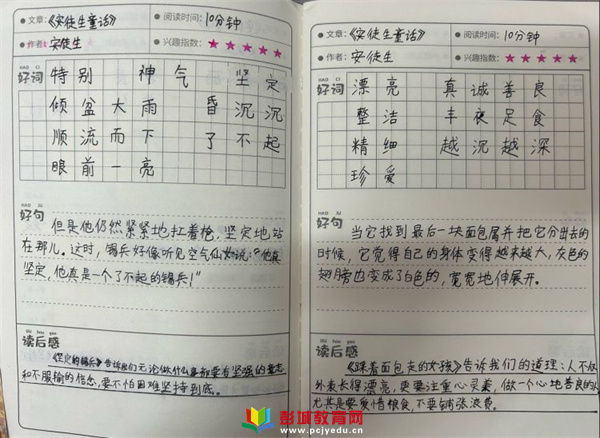 文章:《安徒生童话》 阅读时间: 10分钟
作者: 安徒生 兴趣指数: ★★★★★
HAO CI
好词 特别 神气 坚定
倾盆大雨 昏沉沉
顺流而下 了不起
眼前一亮
HAO JU
好句
但是他仍然紧紧地扛着枪,坚定地站
在那儿。这时,锡兵好像听见空气仙女说:“他真
坚定,他真是一个了不起的锡兵!”
读后感
《坚定的锡兵》告诉我们无论做什么事都要有坚强的意志
和不服输的信念,要不怕困难坚持到底。
文章:《安徒生童话》 阅读时间: 10分钟
作者: 安徒生 兴趣指数: ★★★★★
HAO CI
好词 漂亮 真诚善良
整洁 丰衣足食
精细 越沉越深
珍爱
HAO JU
好句
当它找到最后一块面包屑并把它分出去的
时候,它觉得自己的身体变得越来越大,灰色的
翅膀也变成了白色的,宽宽地伸展开。
读后感
《踩着面包走的女孩》告诉我们的道理:人不仅
外表长得漂亮,更要注重心灵美,做一个心地善良的人
尤其是要爱惜粮食,不要铺张浪费。
彭城教育网
www.pcjyedu.cn